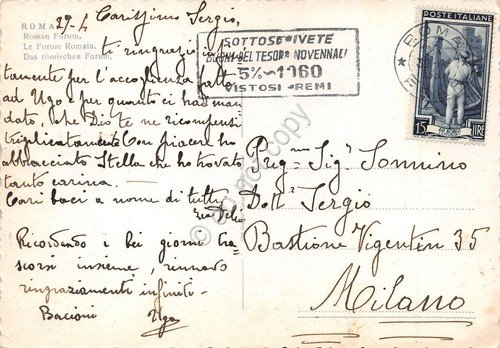 ROMA
Roman Forum.
Le Forum Romain.
Das römischen Forum.
29-4
Carissimo Sergio,
ti ringrazio infini
tamente per l'accoglienza fatta
ad Ugo e per quanto ci hai man
dato, che Dio te ne ricompensi
triplicatamente. Con piacere ho
abbracciato Stella che ho trovata
tanto carina. —
Cari baci a nome di tutti
zia Delia
Ricordando i bei giorni tra=
scorsi insieme, rinnovo
ringraziamenti infiniti-
Bacioni Ugo
SOTTOSCRIVETE
BUONI DEL TESORO NOVENNALI
5%-1960
VISTOSI PREMI
ROMA
POSTE ITALIANE
15 LIRE
Preg-mo Sig. Sonnino
Dott. Sergio
Bastione Vigentin 35
Milano